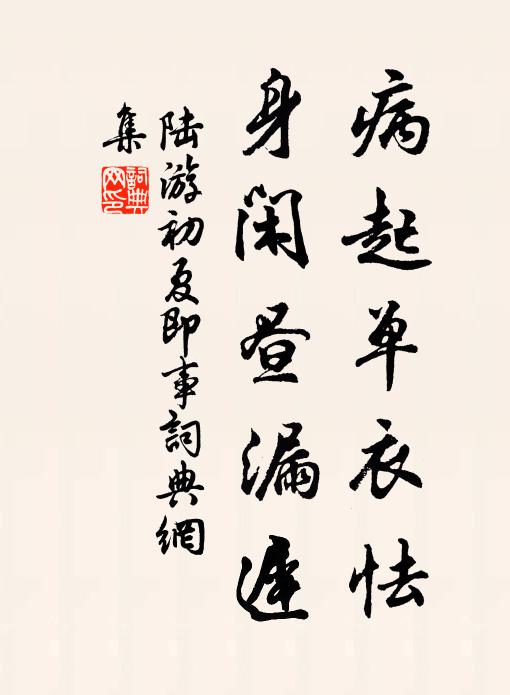 病起单衣怯
身闲昼漏遲
陆游初夏即事詞典網
集
詞典
网印